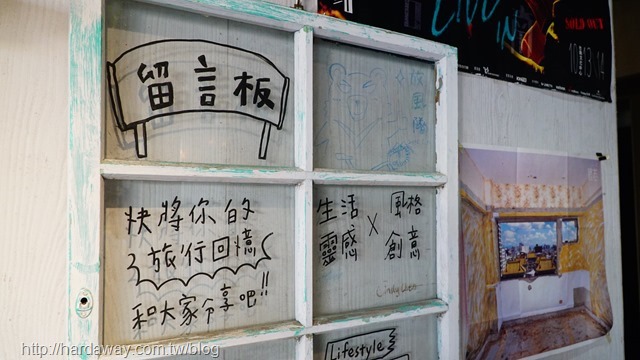 留言板
放風陽
快將你的
旅行回憶
和大家分享吧!!
生活 X 風格
靈感 創意
Lifestyle
LIVE
IN
SOLD OUT
http://hardaway.com.tw/blog